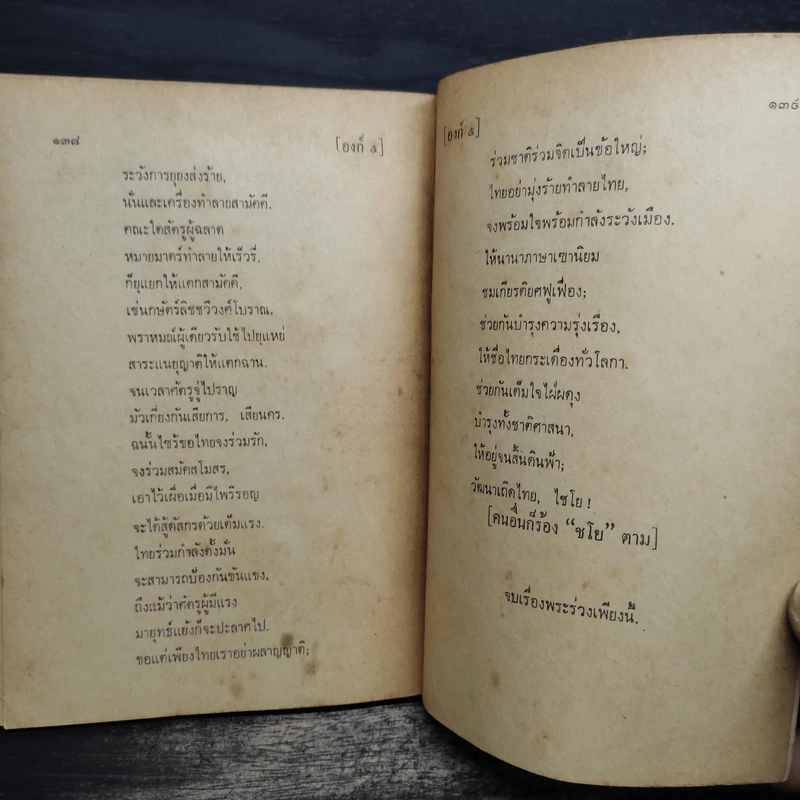 ๑๓๘
[องก์ ๕]
ระวังการยุยงส่งร้าย,
นั่นและเครื่องทำลายสามัคคี.
คณะใดศัตรูผู้ฉลาด
หมายมาดร์ทำลายให้เร็วรี่,
ก็ยุแยกให้แตกสามัคคี,
เช่นกษัตร์ลิชชวีวงศ์โบราณ.
พราหมณ์ผู้เดียวรับใช้ไปยุแหย่
สาระแนยุญาติให้แตกฉาน.
จนเวลาศัตรูจู่ไปราญ
มัวเกี่ยงกันเสียการ, เสียนคร.
ฉนั้นไซร้ขอไทยจงร่วมรัก,
จงร่วมสมัคสโมสร,
เอาไว้เผื่อเมื่อมีไพรีรอญ
จะได้สู้ดัสกรด้วยเต็มแรง.
ไทยร่วมกำลังตั้งมั่น
จะสามารถป้องกันขันแขง,
ถึงแม้ว่าศัตรูผู้มีแรง
มายุทธ์แย้งก็จะปะลาศไป.
ขอแต่เพียงไทยเราอย่าผลาญญาติ;
๑๓๙
[องก์ ๕]
ร่วมชาติร่วมจิตเป็นข้อใหญ่;
ไทยอย่ามุ่งร้ายทำลายไทย,
จงพร้อมใจพร้อมกำลังระวังเมือง.
ให้นานาภาษาเขานิยม
ชมเกียรติยศฟูเฟื่อง;
ช่วยกันบำรุงความรุ่งเรือง,
ให้ชื่อไทยกระเดื่องทั่วโลกา.
ช่วยกันเต็มใจใฝ่ผดุง
บำรุงทั้งชาติศาสนา,
ให้อยู่จนสิ้นดินฟ้า;
วัฒนาเถิดไทย, ไชโย!
[คนอื่นก็ร้อง “ชโย” ตาม]
จบเรื่องพระร่วงเพียงนี้.